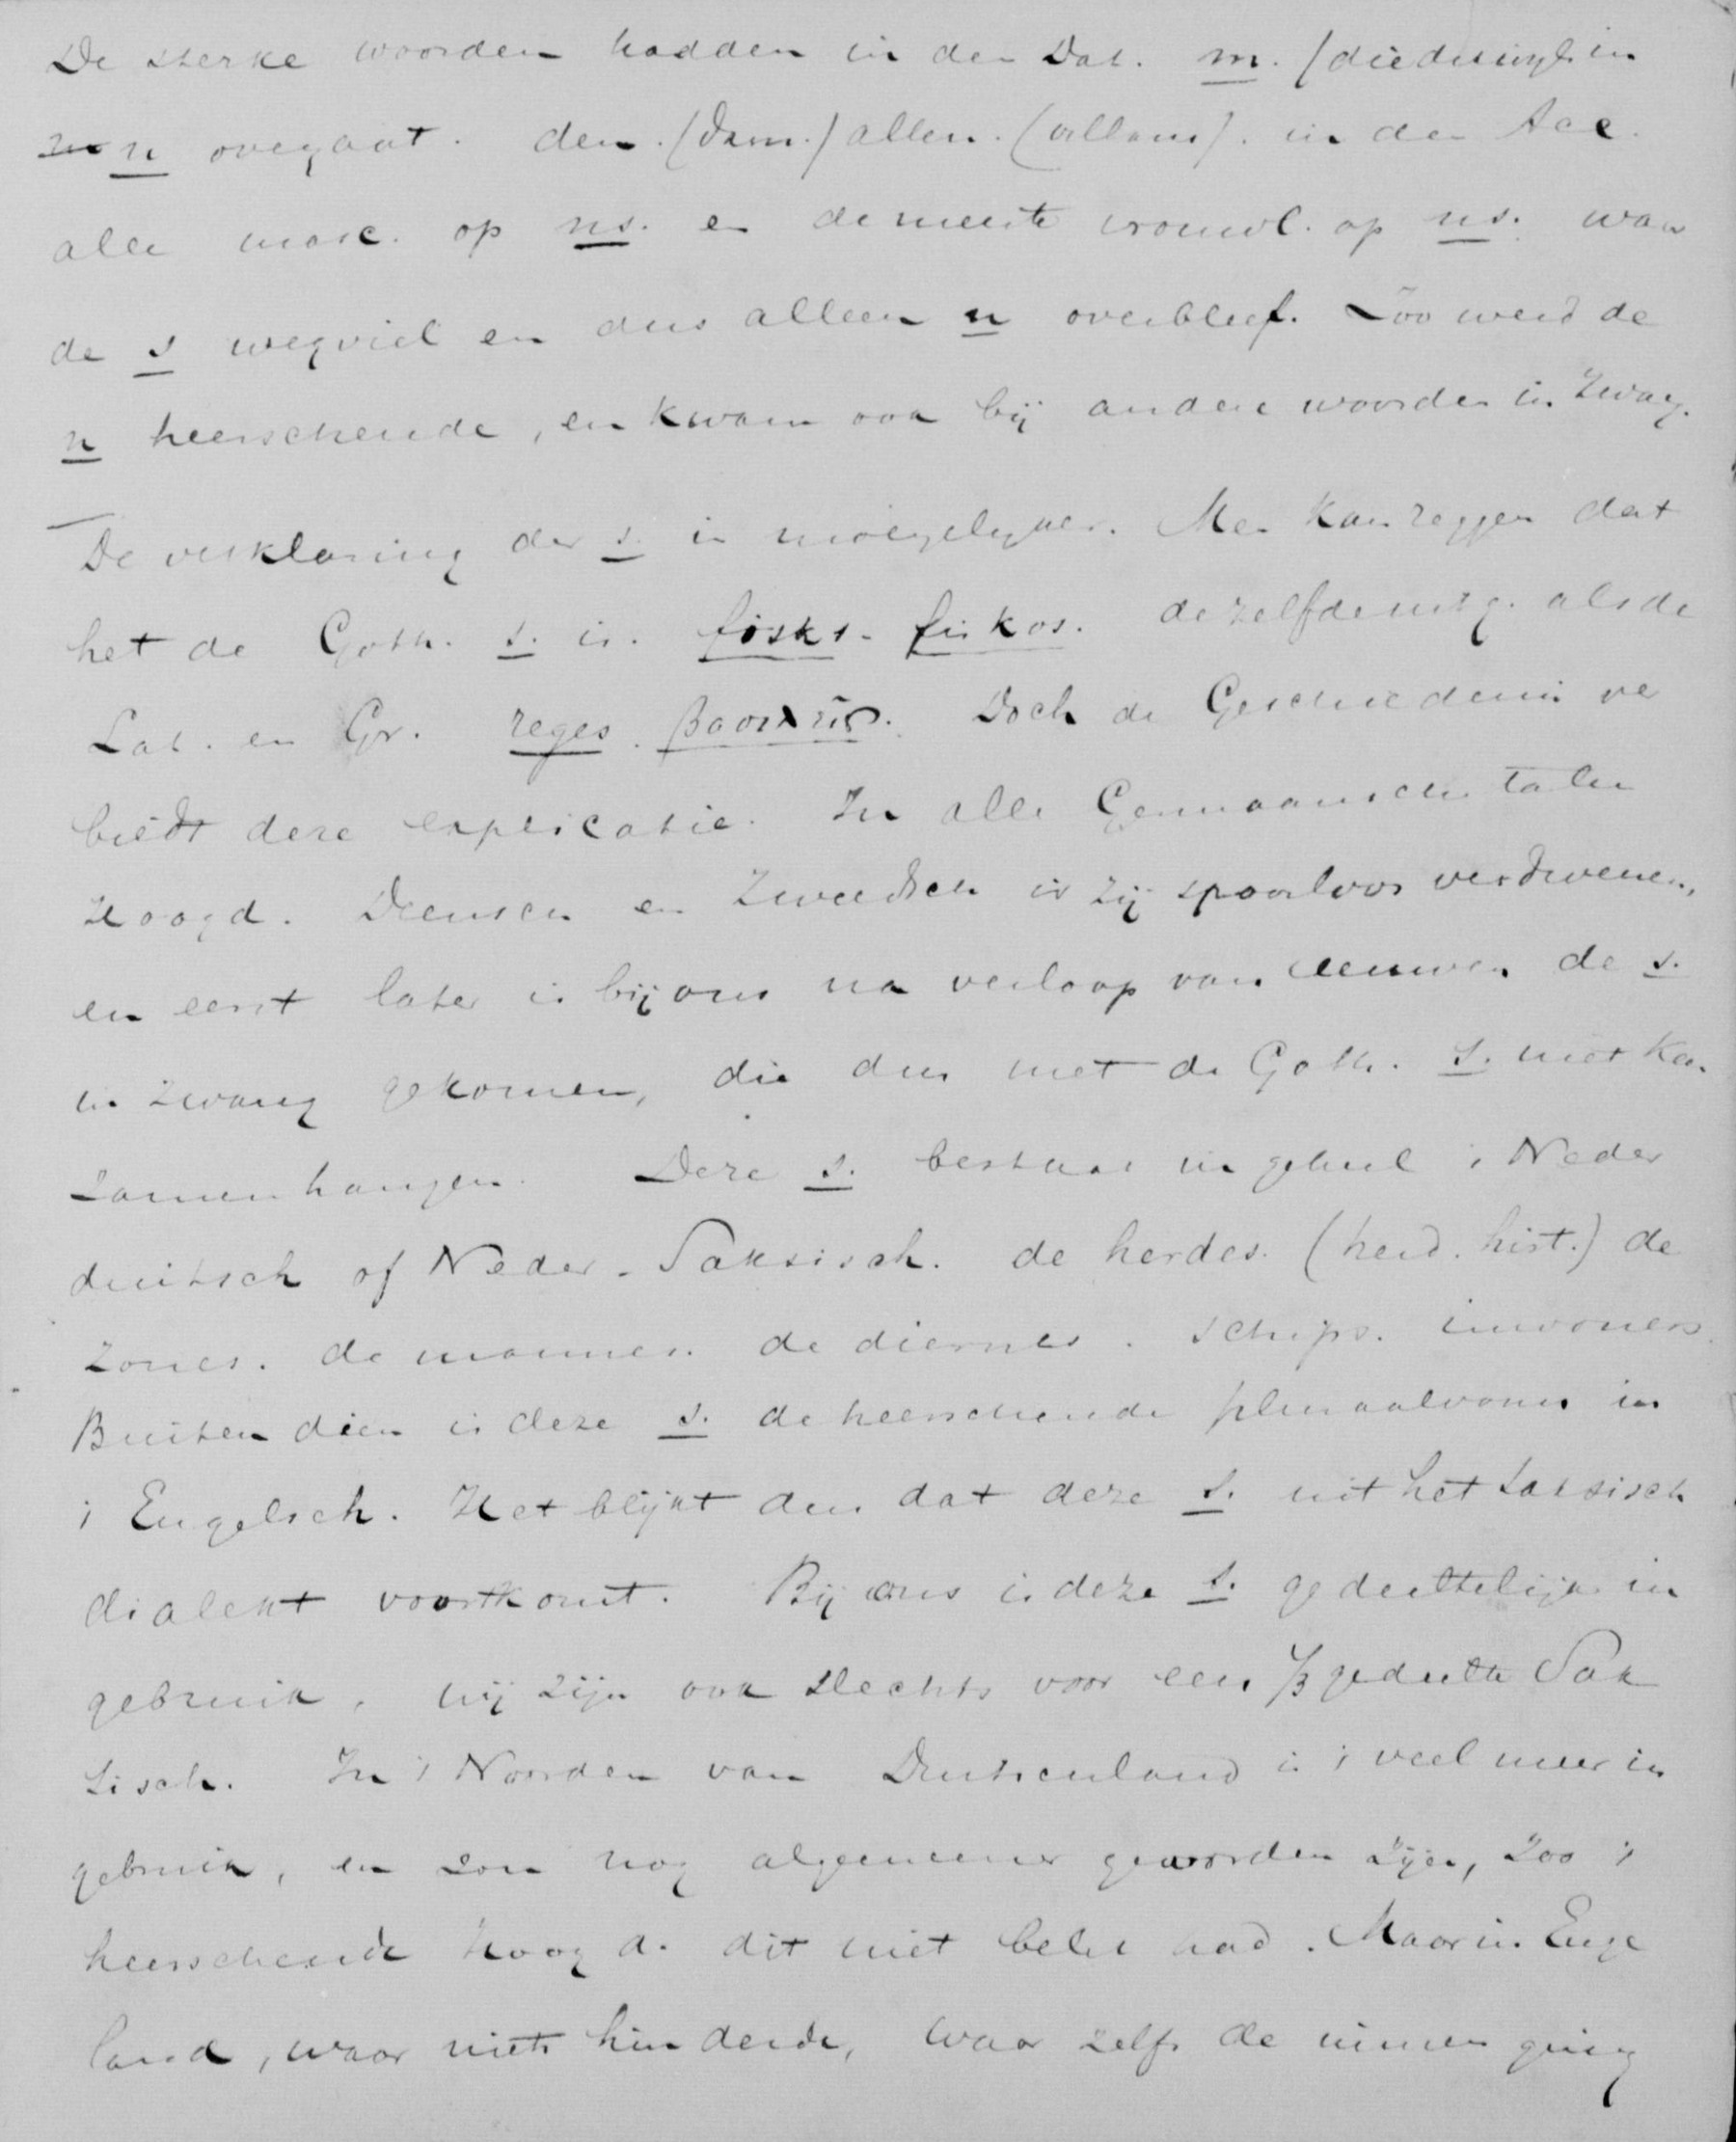 De sterke woorden hadden in den Dat. m. (die dikwijls in
n overgaat. den. (dam.) allen. (allam). in den Acc.
alle masc. op ns. en de meeste vrouwl. op ns. waar
de s wegviel en dus alleen n overbleef. Zoo werd de
n heerschende, en kwam ook bij andere woorden in zwang.
De verklaring der s. is moeijelijker. Men kan zeggen dat
het de Goth. s. is. fisks. fiskos. dezelfde uitg. als de
Lat. en Gr. reges. Doch de Geschiedenis ver
biedt deze explicatie. In alle Germaansche talen
Hoogd. Deensch en Zweedsch is zij spoorloos verdwenen,
en eerst later is bij ons na verloop van eeuwen de s.
in zwang gekomen, die dus met de Goth. s. niet kan
samenhangen. Deze s. bestaat in geheel 's Neder
duitsch of Neder-Saksisch. de herdes. (herd. hist.) de
zones. de mannen. de diernes. schips. inwoners.
Buitendien is deze s. de heerschende pluraalvorm in
's Engelsch. Het blijkt dus dat deze s. uit het Saksisch
dialekt voortkomt. Bij ons is deze s. gedeeltelijk in
gebruik, wij zijn ook slechts voor een 1/3 gedeelte Sak
sisch. In 's Noorden van Duitschland is 's veel meer in
gebruik, en zou nog algemeener geworden zijn, zoo 's
heerschende Hoogd. dit niet belet had. Maar in Enge
land, waar niets hinderde, waar zelfs de nimen ging